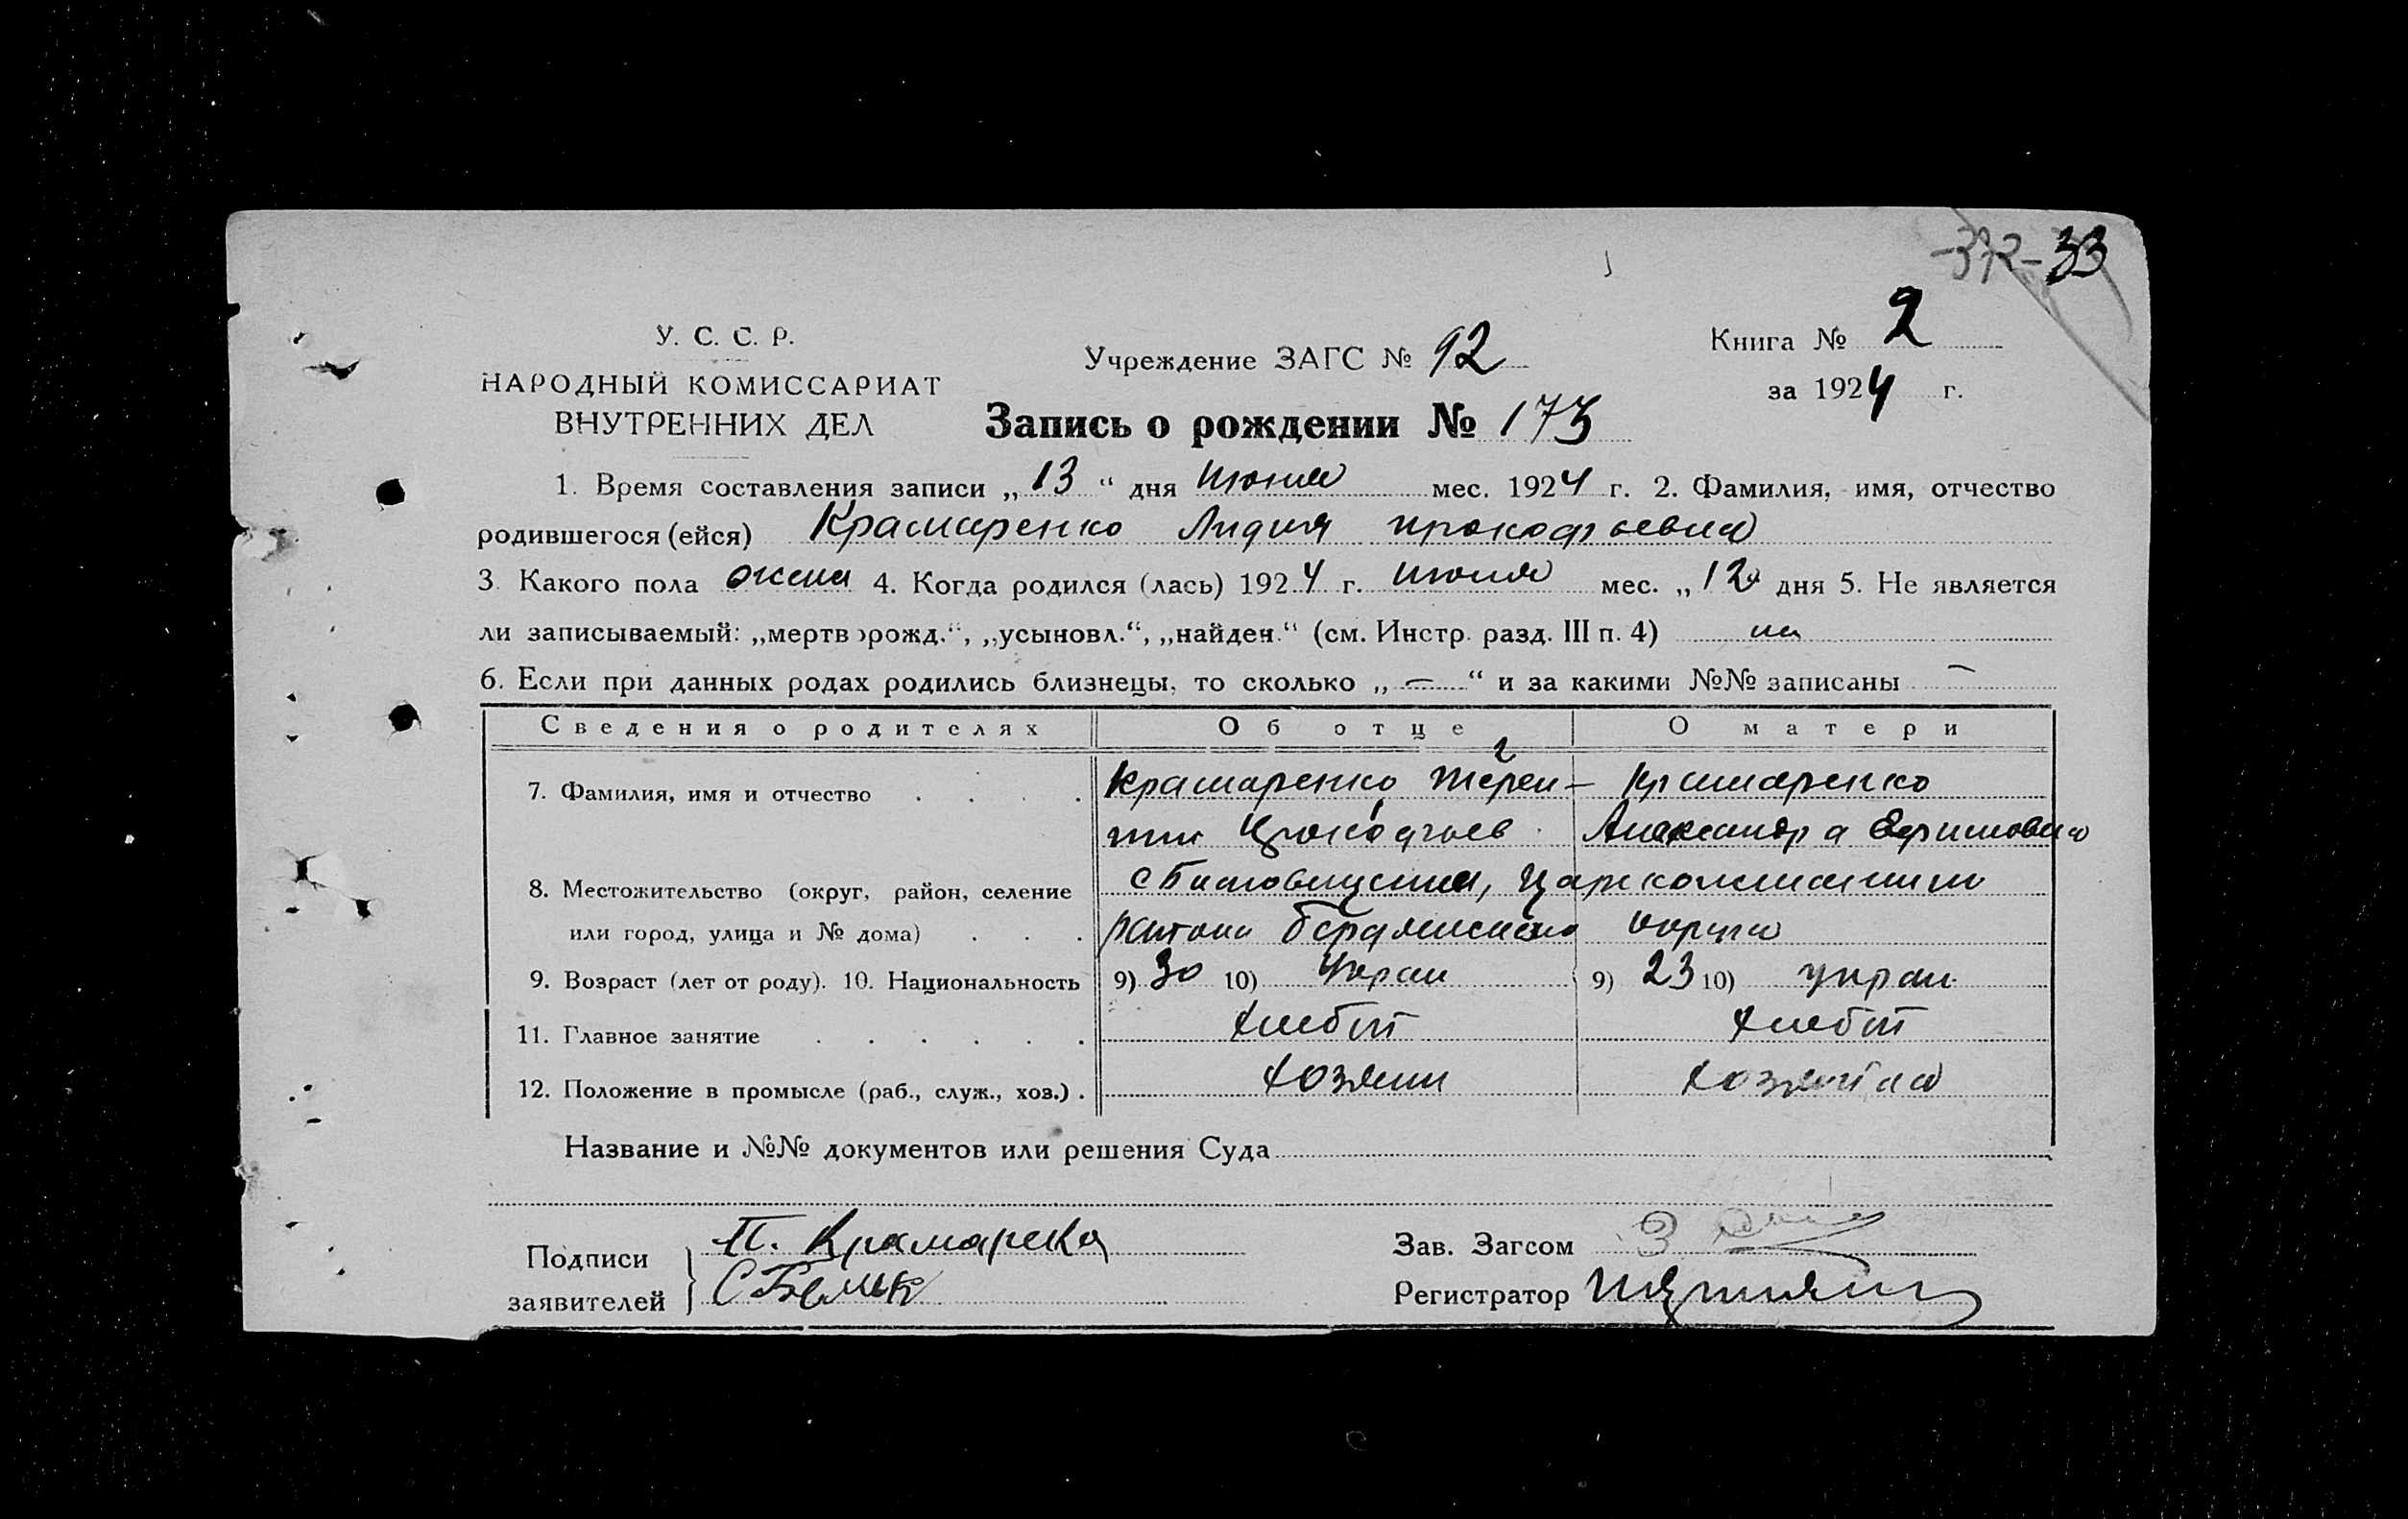 -372- 33
У. С. С. Р.
НАРОДНЫЙ КОМИССАРИАТ
ВНУТРЕННИХ ДЕЛ
Учреждение ЗАГС № 92
Книга № 2
за 1924 г.
Запись о рождении № 173
1. Время составления записи „13“ дня Июня мес. 1924 г. 2. Фамилия, имя, отчество
родившегося (ейся) Крамаренко Лидия Прокофьевна
3. Какого пола жена 4. Когда родился (лась) 1924 г. Июня мес. „12 дня 5. Не является
ли записываемый: „мертворожд.“, „усыновл.“, „найден.“ (см. Инстр. разд. III п. 4)
6. Если при данных родах родились близнецы, то сколько „—“ и за какими №№ записаны —
Сведения о родителях Об отце О матери
7. Фамилия, имя и отчество . . . . Крамаренко Терен- Крамаренко
2
1
тии Прокофьев Александра
8. Местожительство (округ, район, селение
или город, улица и № дома) . . . района Бердянского округа
9. Возраст (лет от роду). 10. Национальность 9) 30 10) Украи 9) 23 10) украи
11. Главное занятие . . . . . . хлебоп хлебоп
12. Положение в промысле (раб., служ., хоз.) . хозяин хозяйка
Название и №№ документов или решения Суда
Подписи
заявителей
П. Крамаренко
Зав. Загсом
Регистратор